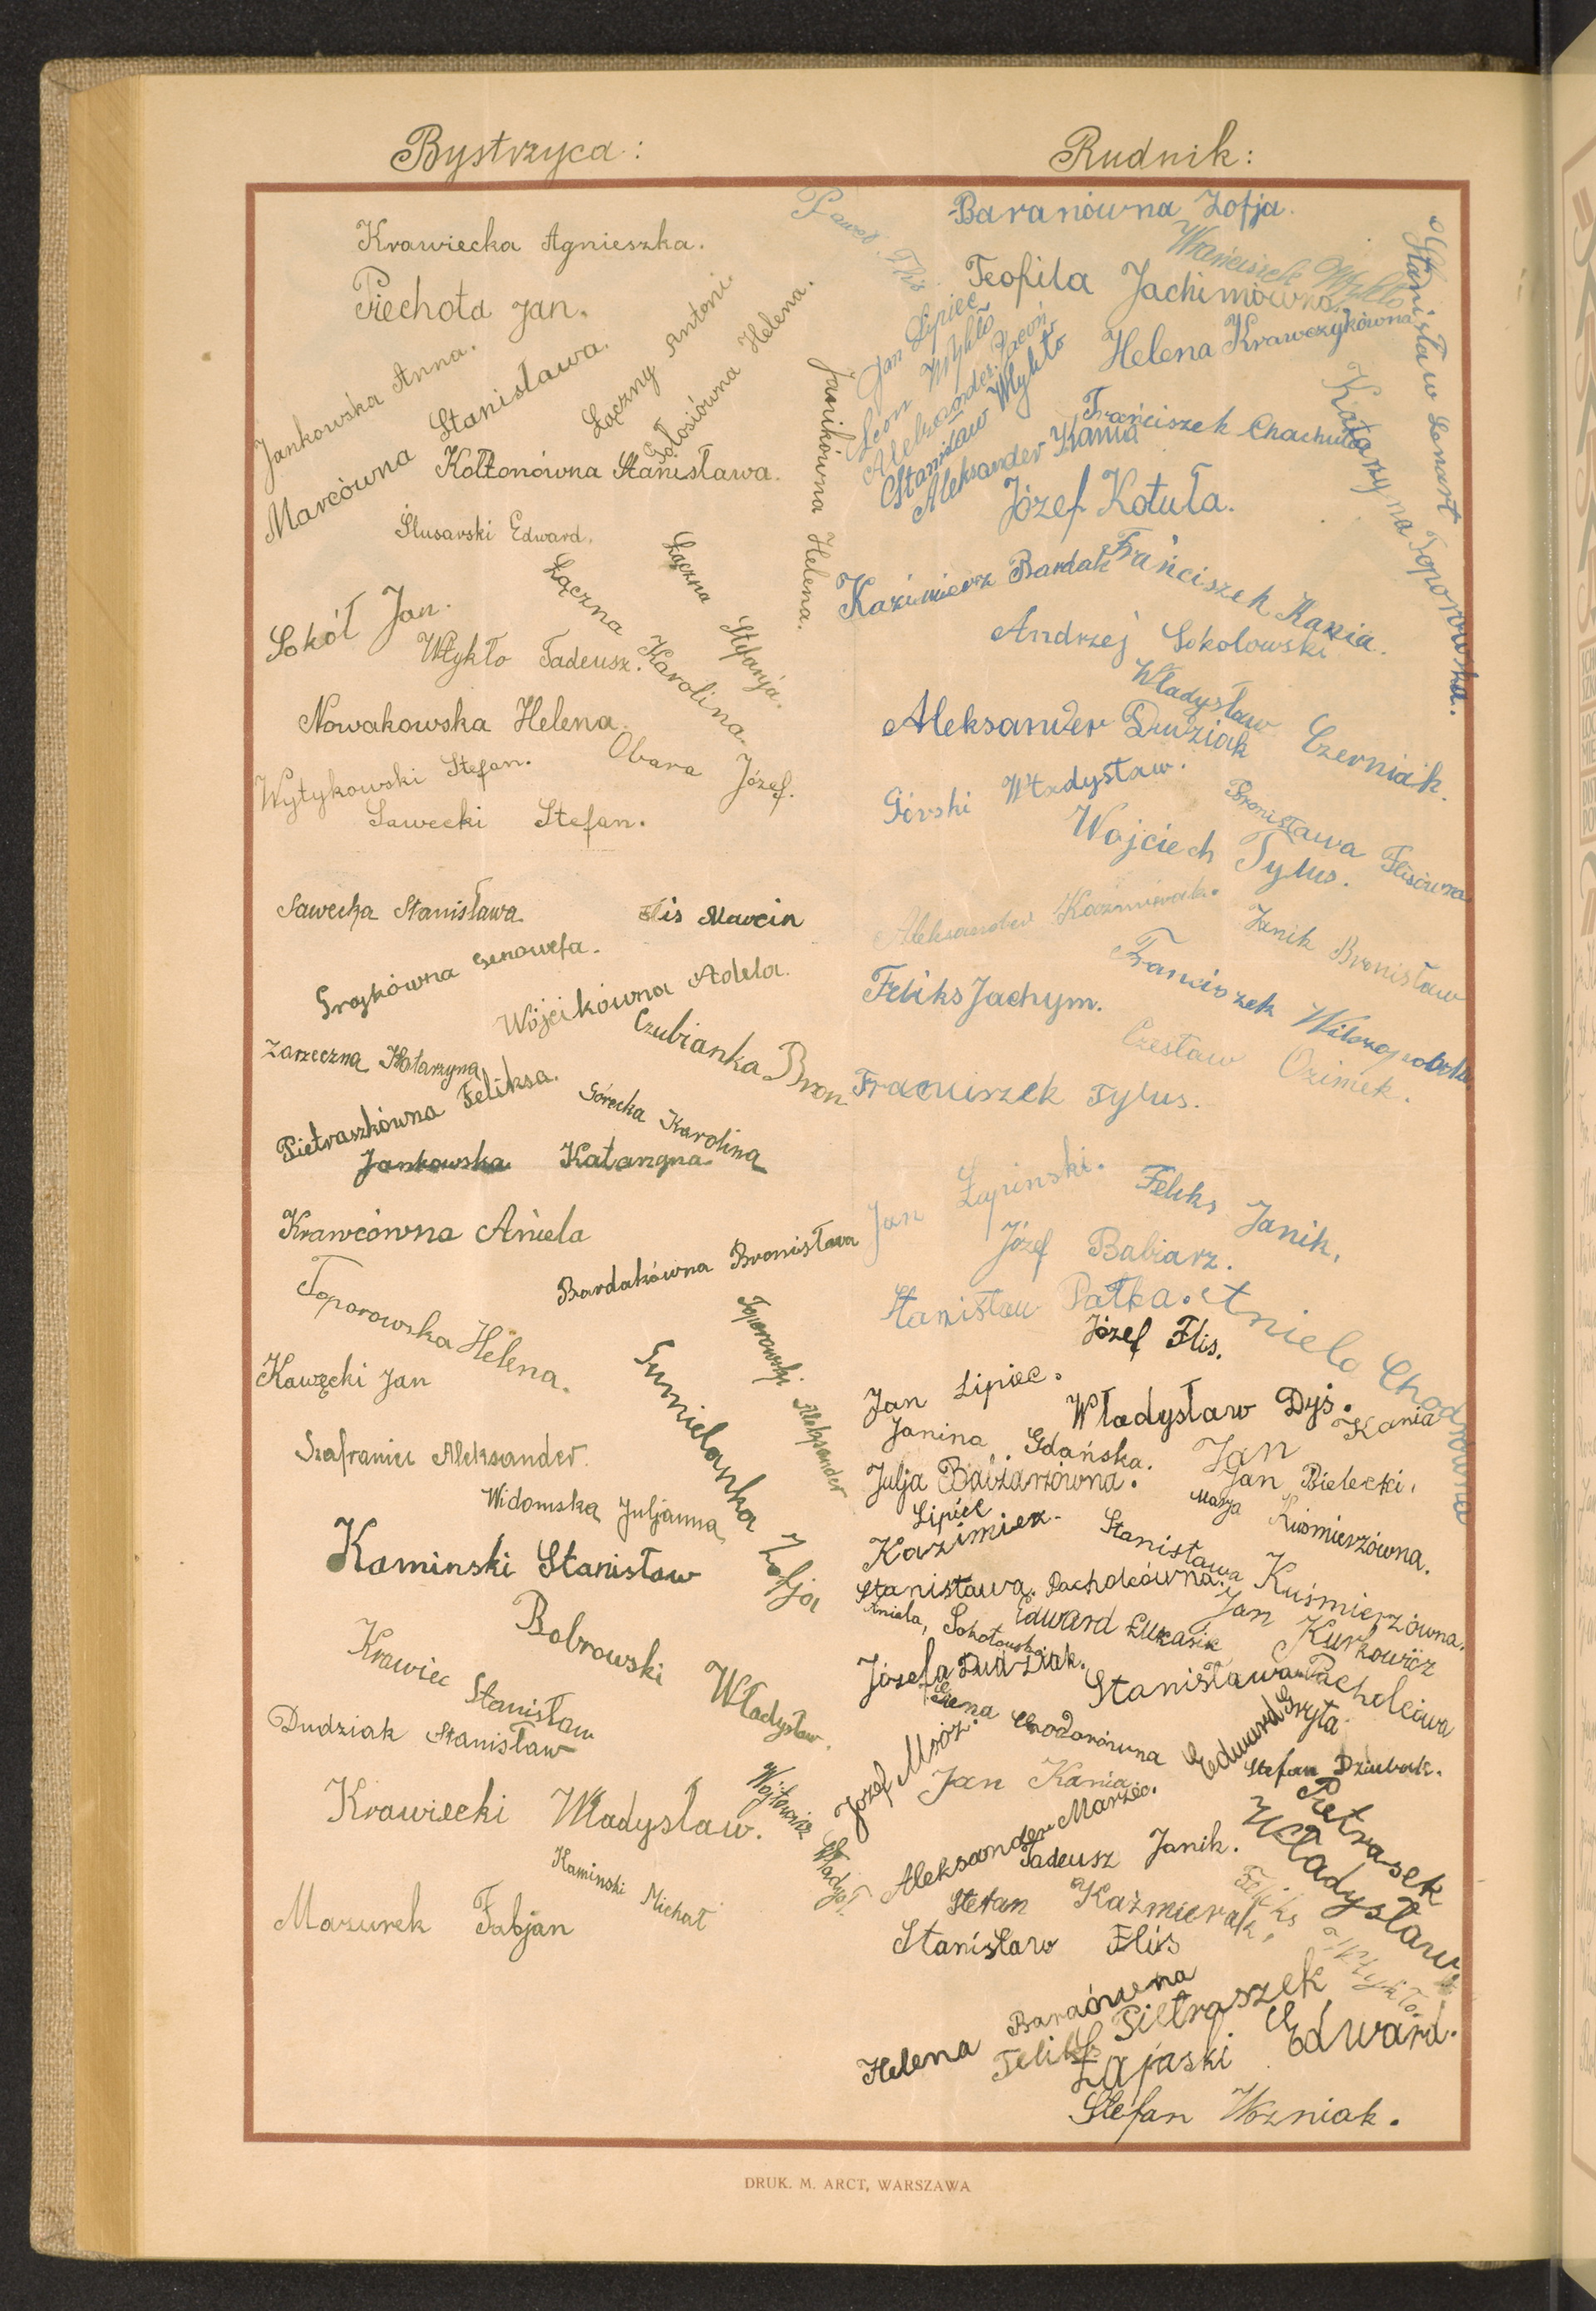 Bystrzyca:
Krawiecka Agnieszka.
Piechota Jan.
Jankowska Anna.
Marcówna Stanisława.
Łączny Antoni
Gołosiówna Helena.
Kołtonówna Stanisława.
Janikówna Helena.
Ślusarski Edward.
Łączna Stefanja.
Łączna Karolina.
Sokół Jan.
Wtykło Tadeusz.
Nowakowska Helena.
Obara Józef.
Wytykowski Stefan.
Sawecki Stefan.
Sawecka Stanisława.
Flis Marcin
Genowefa.
Wójcikówna Adela.
Czubianka Bron.
Zarzeczna Katarzyna
Pietraszkówna Feliksa.
Górecka Karolina
Jankowska Katarzyna.
Krawcówna Aniela
Bardakówna Bronisława
Toporowska Helena.
Toporowski Aleksander
Kawęcki Jan
Gumielanka Zofja
Szafraniec Aleksander.
Widomska Juljanna
Kaminski Stanisław
Bobrowski Władysław.
Krawiec Stanisław
Dudziak Stanisław
Krawiecki Władysław.
Wójtowicz Władysł.
Kaminski Michał
Mazurek Fabjan
Rudnik:
Baranówna Zofja.
Paweł Flis
Franciszek Wtykło
Teofila Jachimówna.
Stanisław Lenart
Jan Lipiec
Leon Wtykło
Aleksander
Stanisław Wtykło
Aleksander Kania
Helena Krawczykówna
Franciszek Chachuła
Katarzyna Toporowska.
Józef Kotuła.
Kazimierz Bardak
Franciszek Kania.
Andrzej Sokołowski
Władysław Czerniak.
Aleksander Dudziak
Górski Władysław.
Bronisława Flisówna
Wojciech Tylus.
Aleksander Kaźmierak.
Janik Bronisław
Feliks Jachym.
Franciszek
Czesław Ozimek.
Franciszek Tylus.
Jan Łapinski.
Feliks Janik.
Józef Babiarz.
Stanisław Pałka.
Aniela Chodorówna
Józef Flis.
Jan Lipiec.
Władysław Dyś.
Janina Gdańska.
Jan Kania
Julja Babiarzówna.
Jan Bielecki.
Lipiec Kazimierz.
Marja Kuśmierzówna.
Stanisława Kuśmierzówna.
Stanisława Pacholcówna.
Jan Kurkowicz
Aniela, Sokołowska
Edward Łukasik
Józefa Dudziak.
Stanisława Pacholcówa
Irena Chodorówna
Edward Gryta
Józef Mróz.
Jan Kania.
Stefan Dziubak.
Aleksander Marzec.
Pietrasek Władysław.
Tadeusz Janik.
Stefan Kaźmierak.
Feliks Wtykło.
Stanisław Flis
Helena Baranówna
Feliks Pietraszek
Łajaski Edward.
Stefan Wozniak.
DRUK. M. ARCT, WARSZAWA